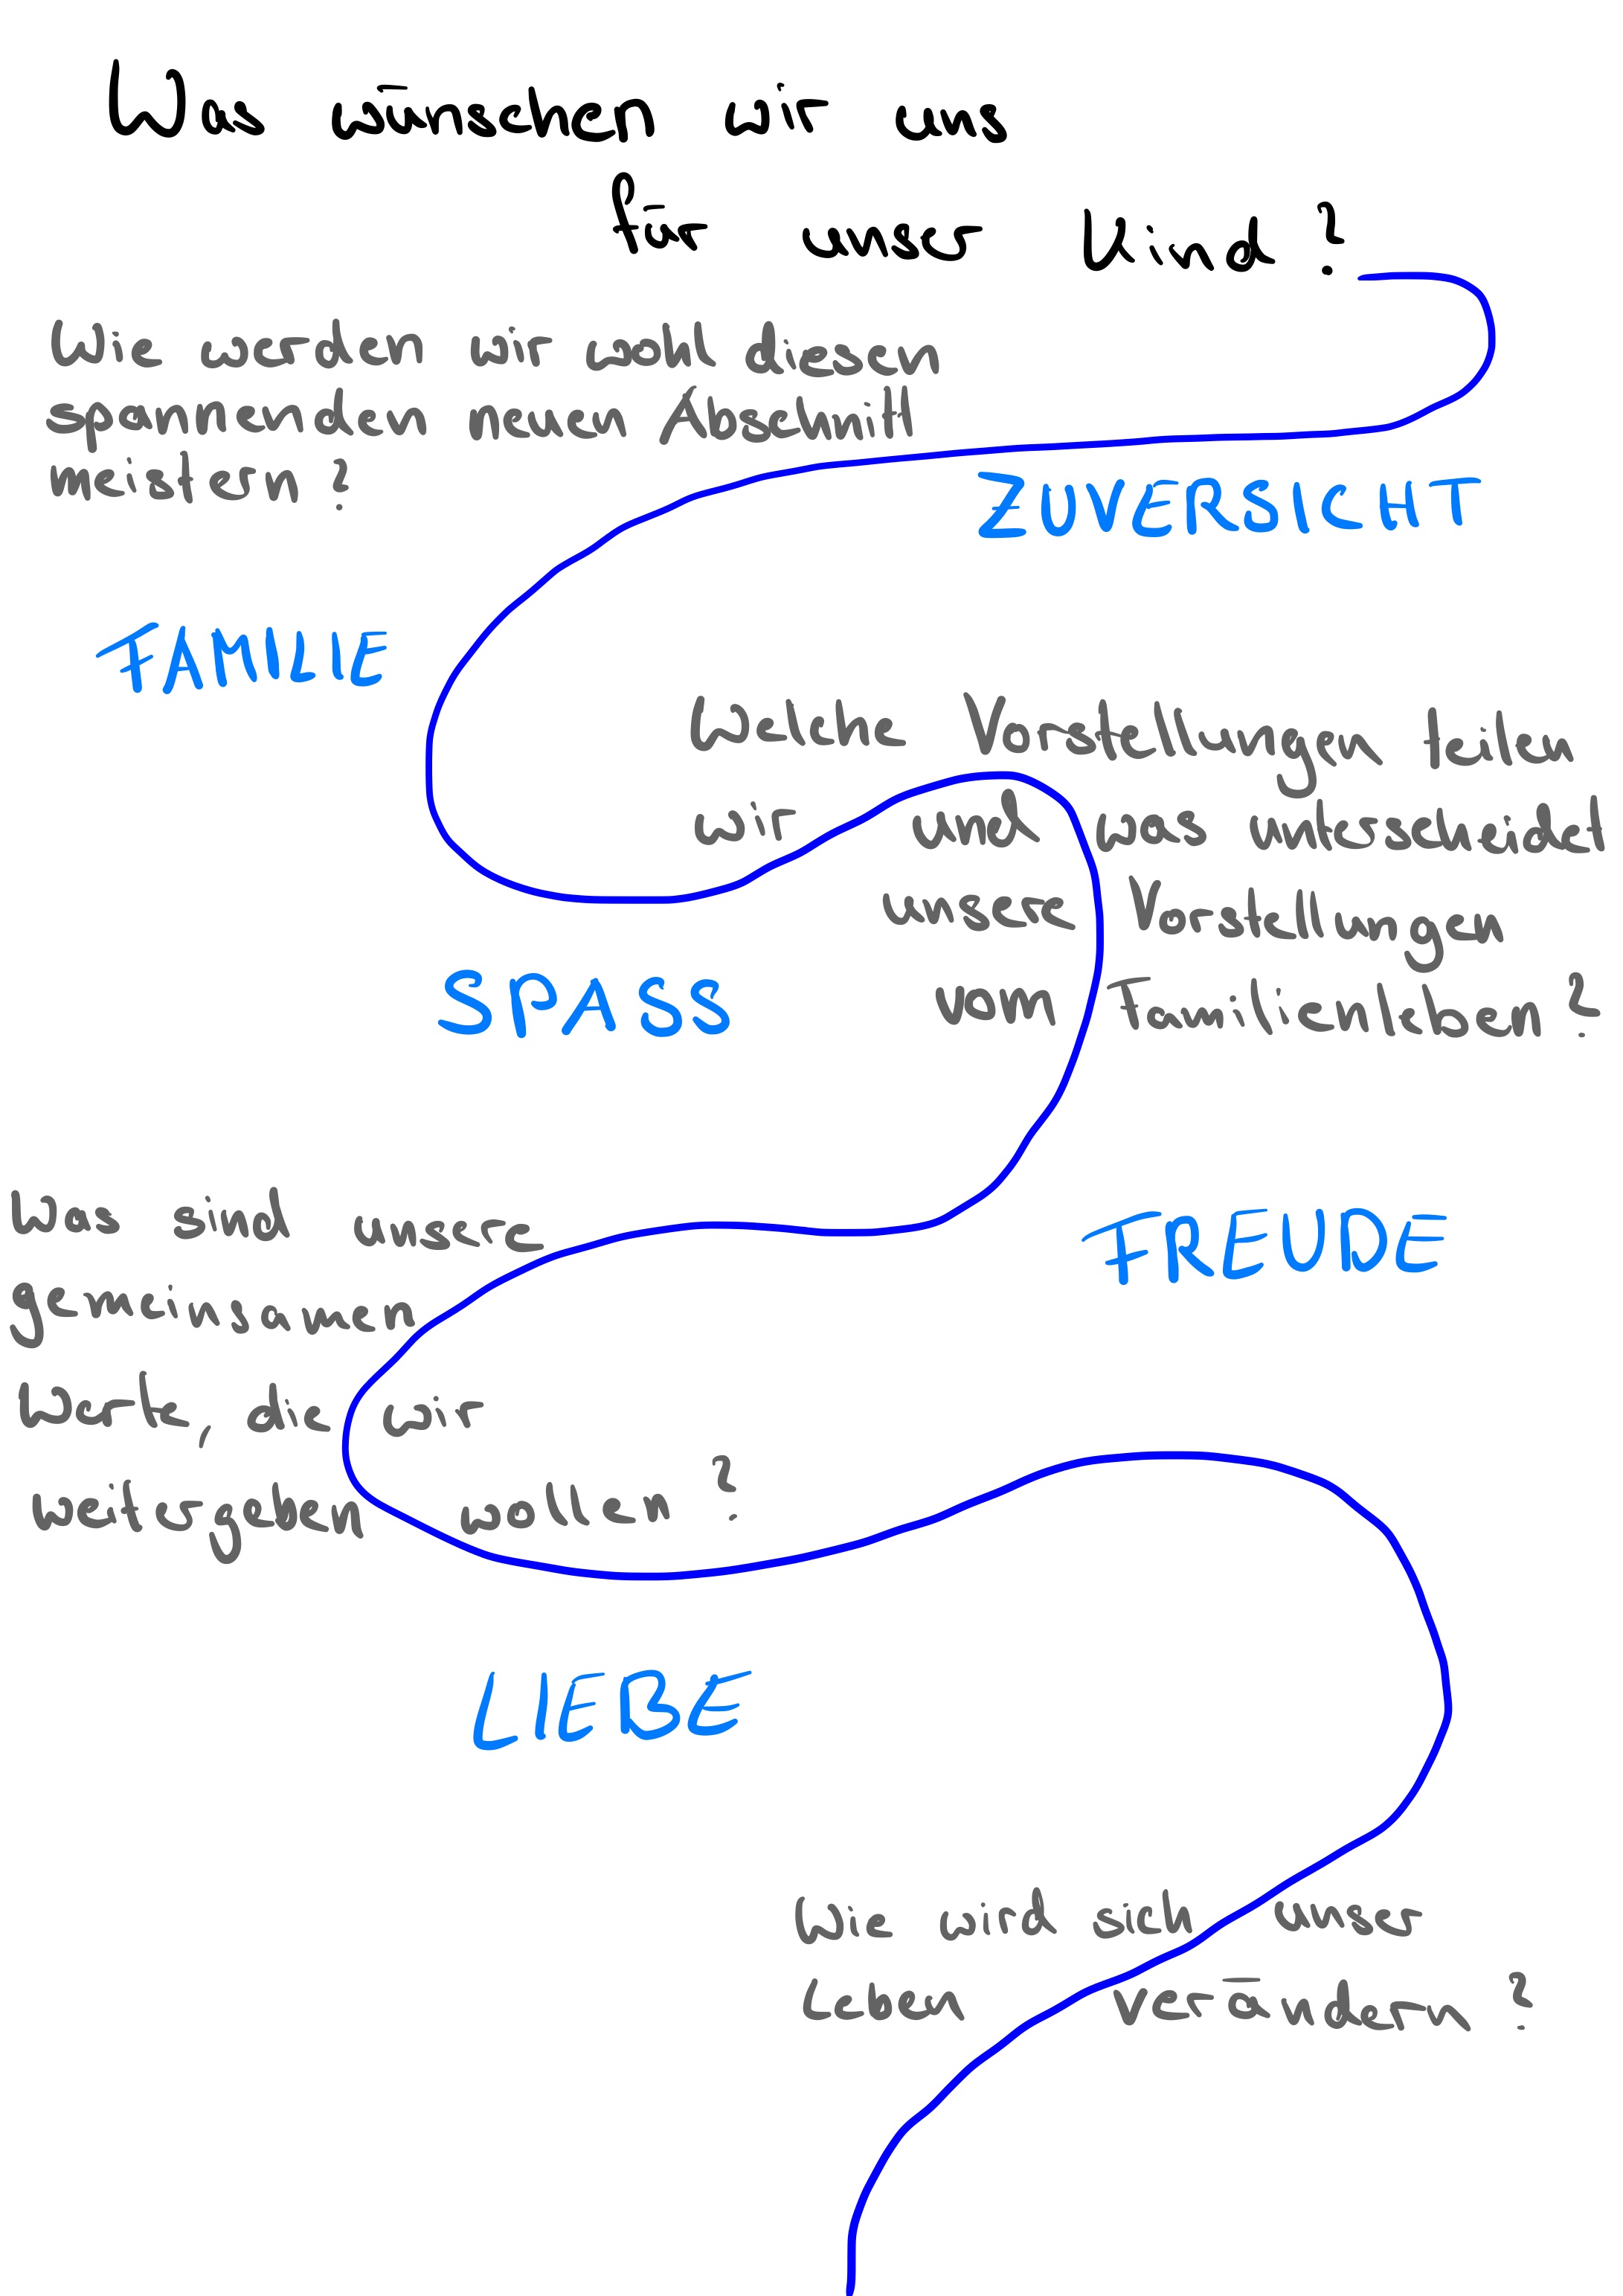 Was wünschen wir uns
für unser Kind?
Wie werden wir wohl diesen
spannenden neuen Abschnitt
meistern?
ZUVERSICHT
FAMILIE
Welche Vorstellungen teilen
wir und was unterscheidet
unsere Vorstellungen
vom Familienleben?
SPASS
Was sind unsere
gemeinsamen
Werte, die wir
weitergeben wollen?
FREUDE
LIEBE
Wie wird sich unser
Leben verändern?